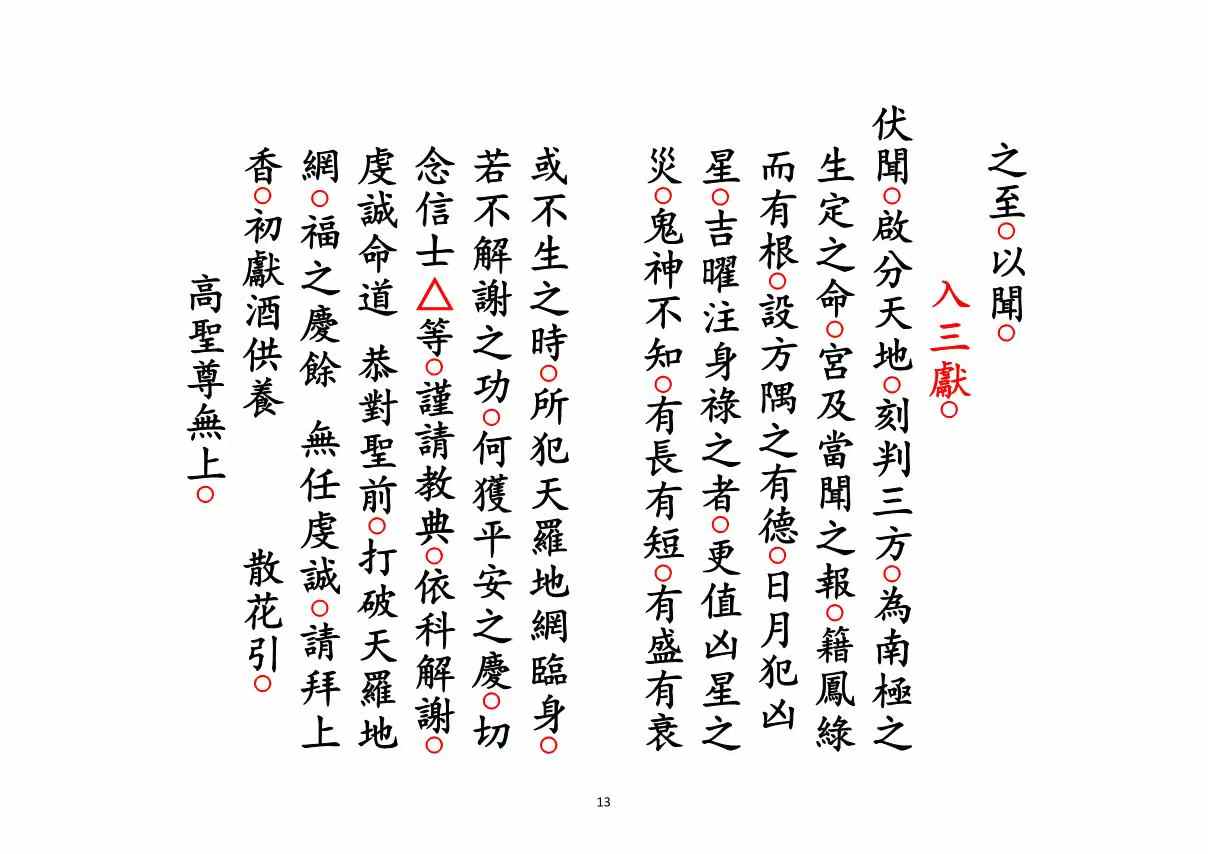 之至○以聞○
入三獻○
伏聞○啟分天地○刻判三方○為南極之
生定之命○宮及當聞之報○籍鳳綠
而有根○設方隅之有德○日月犯凶
星○吉曜注身祿之者○更值凶星之
災○鬼神不知○有長有短○有盛有衰
或不生之時○所犯天羅地網臨身○
若不解謝之功○何獲平安之慶○切
念信士△等○謹請教典○依科解謝○
虔誠命道 恭對聖前○打破天羅地
網○福之慶餘 無任虔誠○請拜上
香○初獻酒供養 散花引○
高聖尊無上○
13